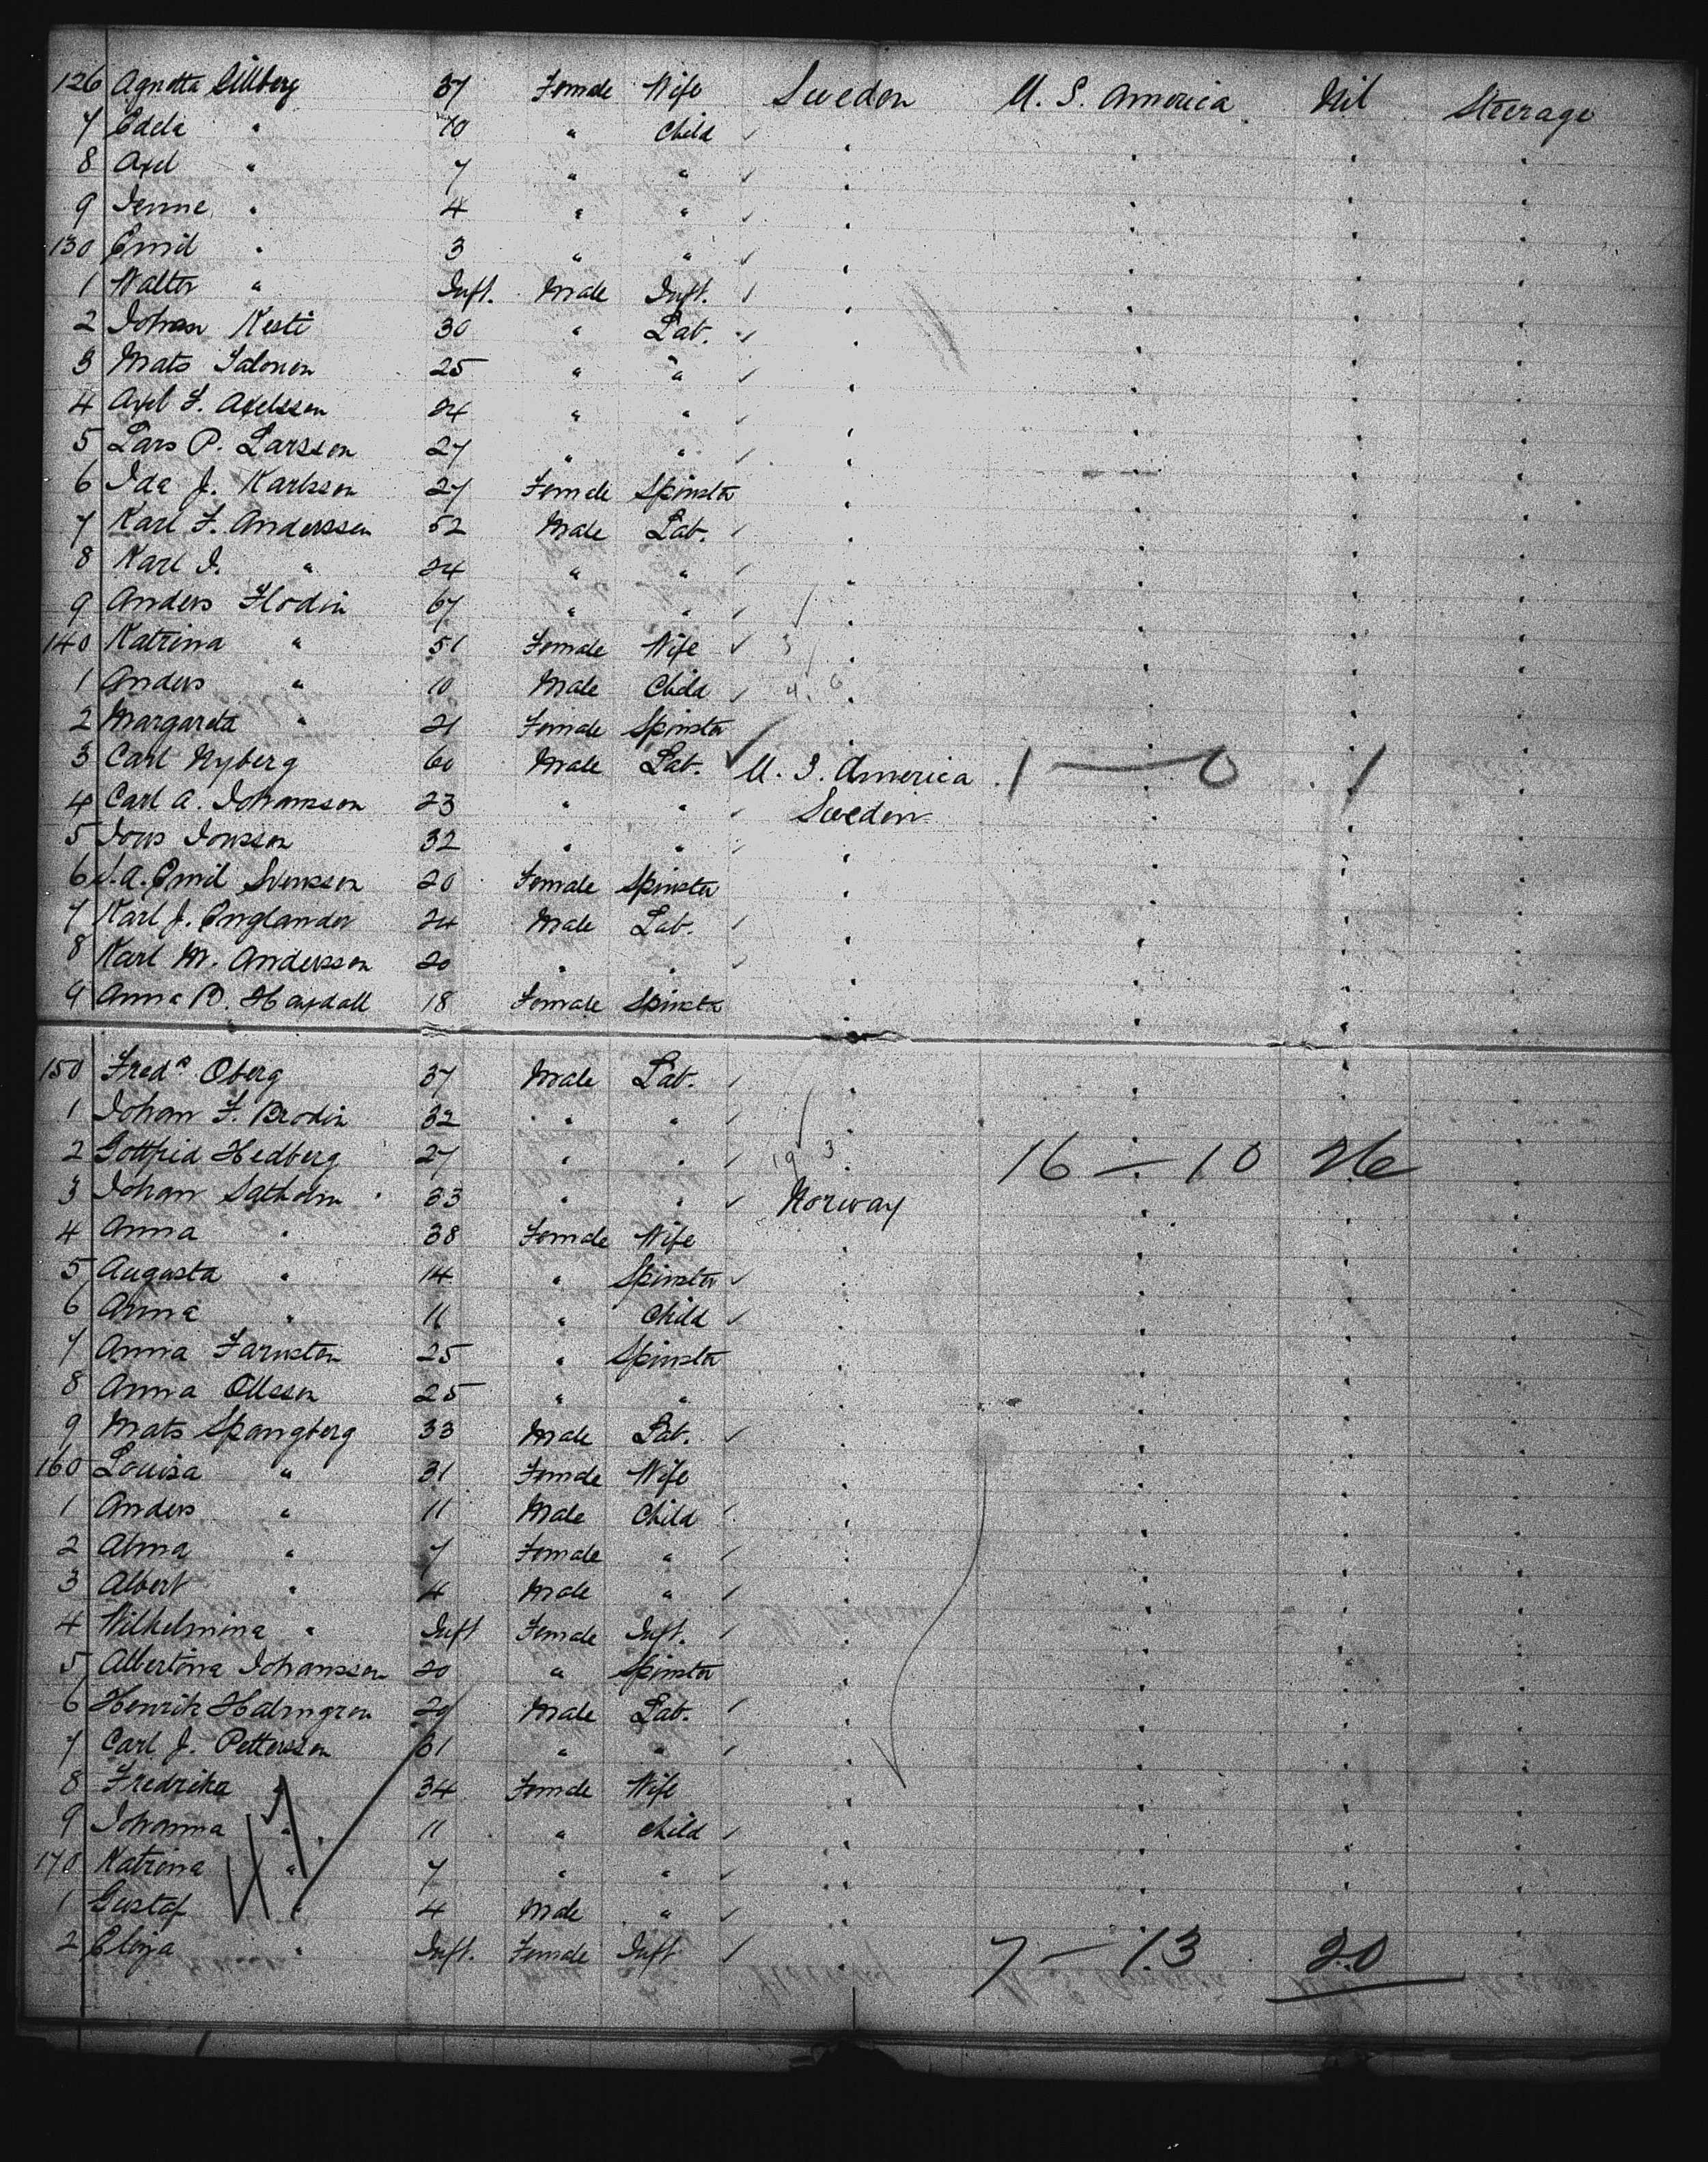 126 Agnetta Sillberg 37 Female Wife Sweden U. S. America Nil Steerage
7 Edela " 10 " Child "
8 Axel " 7 " " "
9 Jenne " 4 " " "
130 Emil " 3 " " "
1 Walter " Inft. Male Inft. "
2 Johan Kesti 30 " Lab. "
3 Mats Salonen 25 " " "
4 Axel F. Axelssen 24 " " "
5 Lars P. Larssen 27 " " "
6 Ida J. Karlssen 27 Female Spinster "
7 Karl F. Anderssen 52 Male Lab. "
8 Karl J. " 24 " " "
9 Anders Flodin 67 " " "
140 Katrina " 51 Female Wife "
1 Anders " 10 Male Child "
2 Margareta " 21 Female Spinster "
3 Carl Nyberg 60 Male Lab. U. S. America 1 — 0 1
4 Carl A. Johanssen 23 " " Sweden
5 Jons Jonssen 32 " " "
6 J. A. Emil Svenssen 20 Female Spinster "
7 Karl J. Englander 24 Male Lab. "
8 Karl M. Anderssen 20 " " "
9 Anna B. 18 Female Spinster "
150 Fredk Oberg 37 Male Lab. "
1 Johan F. Brodin 32 " " "
2 Gottfrid Hedberg 27 " " " 16 — 10 26
3 Johan Satholm 33 " " Norway
4 Anna " 38 Female Wife "
5 Augusta " 14 " Spinster "
6 Anna " 11 " Child "
7 Anna 25 " Spinster "
8 Anna Ollssen 25 " " "
9 Mats Spangberg 33 Male Lab. "
160 Louisa " 31 Female Wife "
1 Anders " 11 Male Child "
2 Alma " 7 Female " "
3 Albert " 4 Male " "
4 Wilhelmina " Inft Female Inft. "
5 Albertina Johanssen 20 " Spinster "
6 Henrik Halmgren 29 Male Lab. "
7 Carl J. Petterssen 31 " " "
8 Fredrika " 34 Female Wife "
9 Johanna " 11 " Child "
170 Katrina " 7 " " "
1 Gustaf " 4 Male " "
2 " Inft. Female Inft " 7 — 13 20